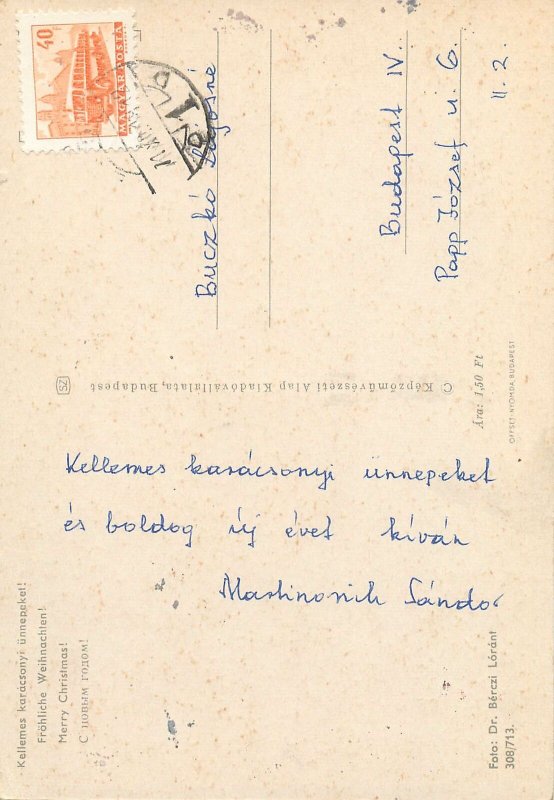 40
MAGYAR POSTA
Buczkó Lajosné
Budapest IV.
Papp József u. 6.
II. 2.
SZ
C Képzőművészeti Alap Kiadóvállalata, Budapest
Ára: 1,50 Ft
OFFSET-NYOMDA, BUDAPEST
Kellemes karácsonyi ünnepeket
és boldog új évet kíván
Martinovich Sándor
Kellemes karácsonyi ünnepeket!
Fröhliche Weihnachten!
Merry Christmas!
С новым годом!
Foto: Dr. Bérczi Lóránt
308/713.